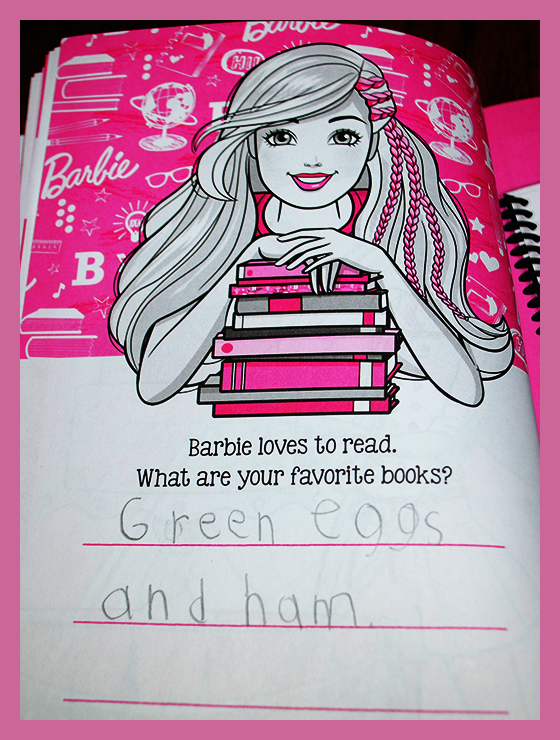 Barbie
HI!
Barbie
B
Barbie loves to read.
What are your favorite books?
Green eggs
and ham.